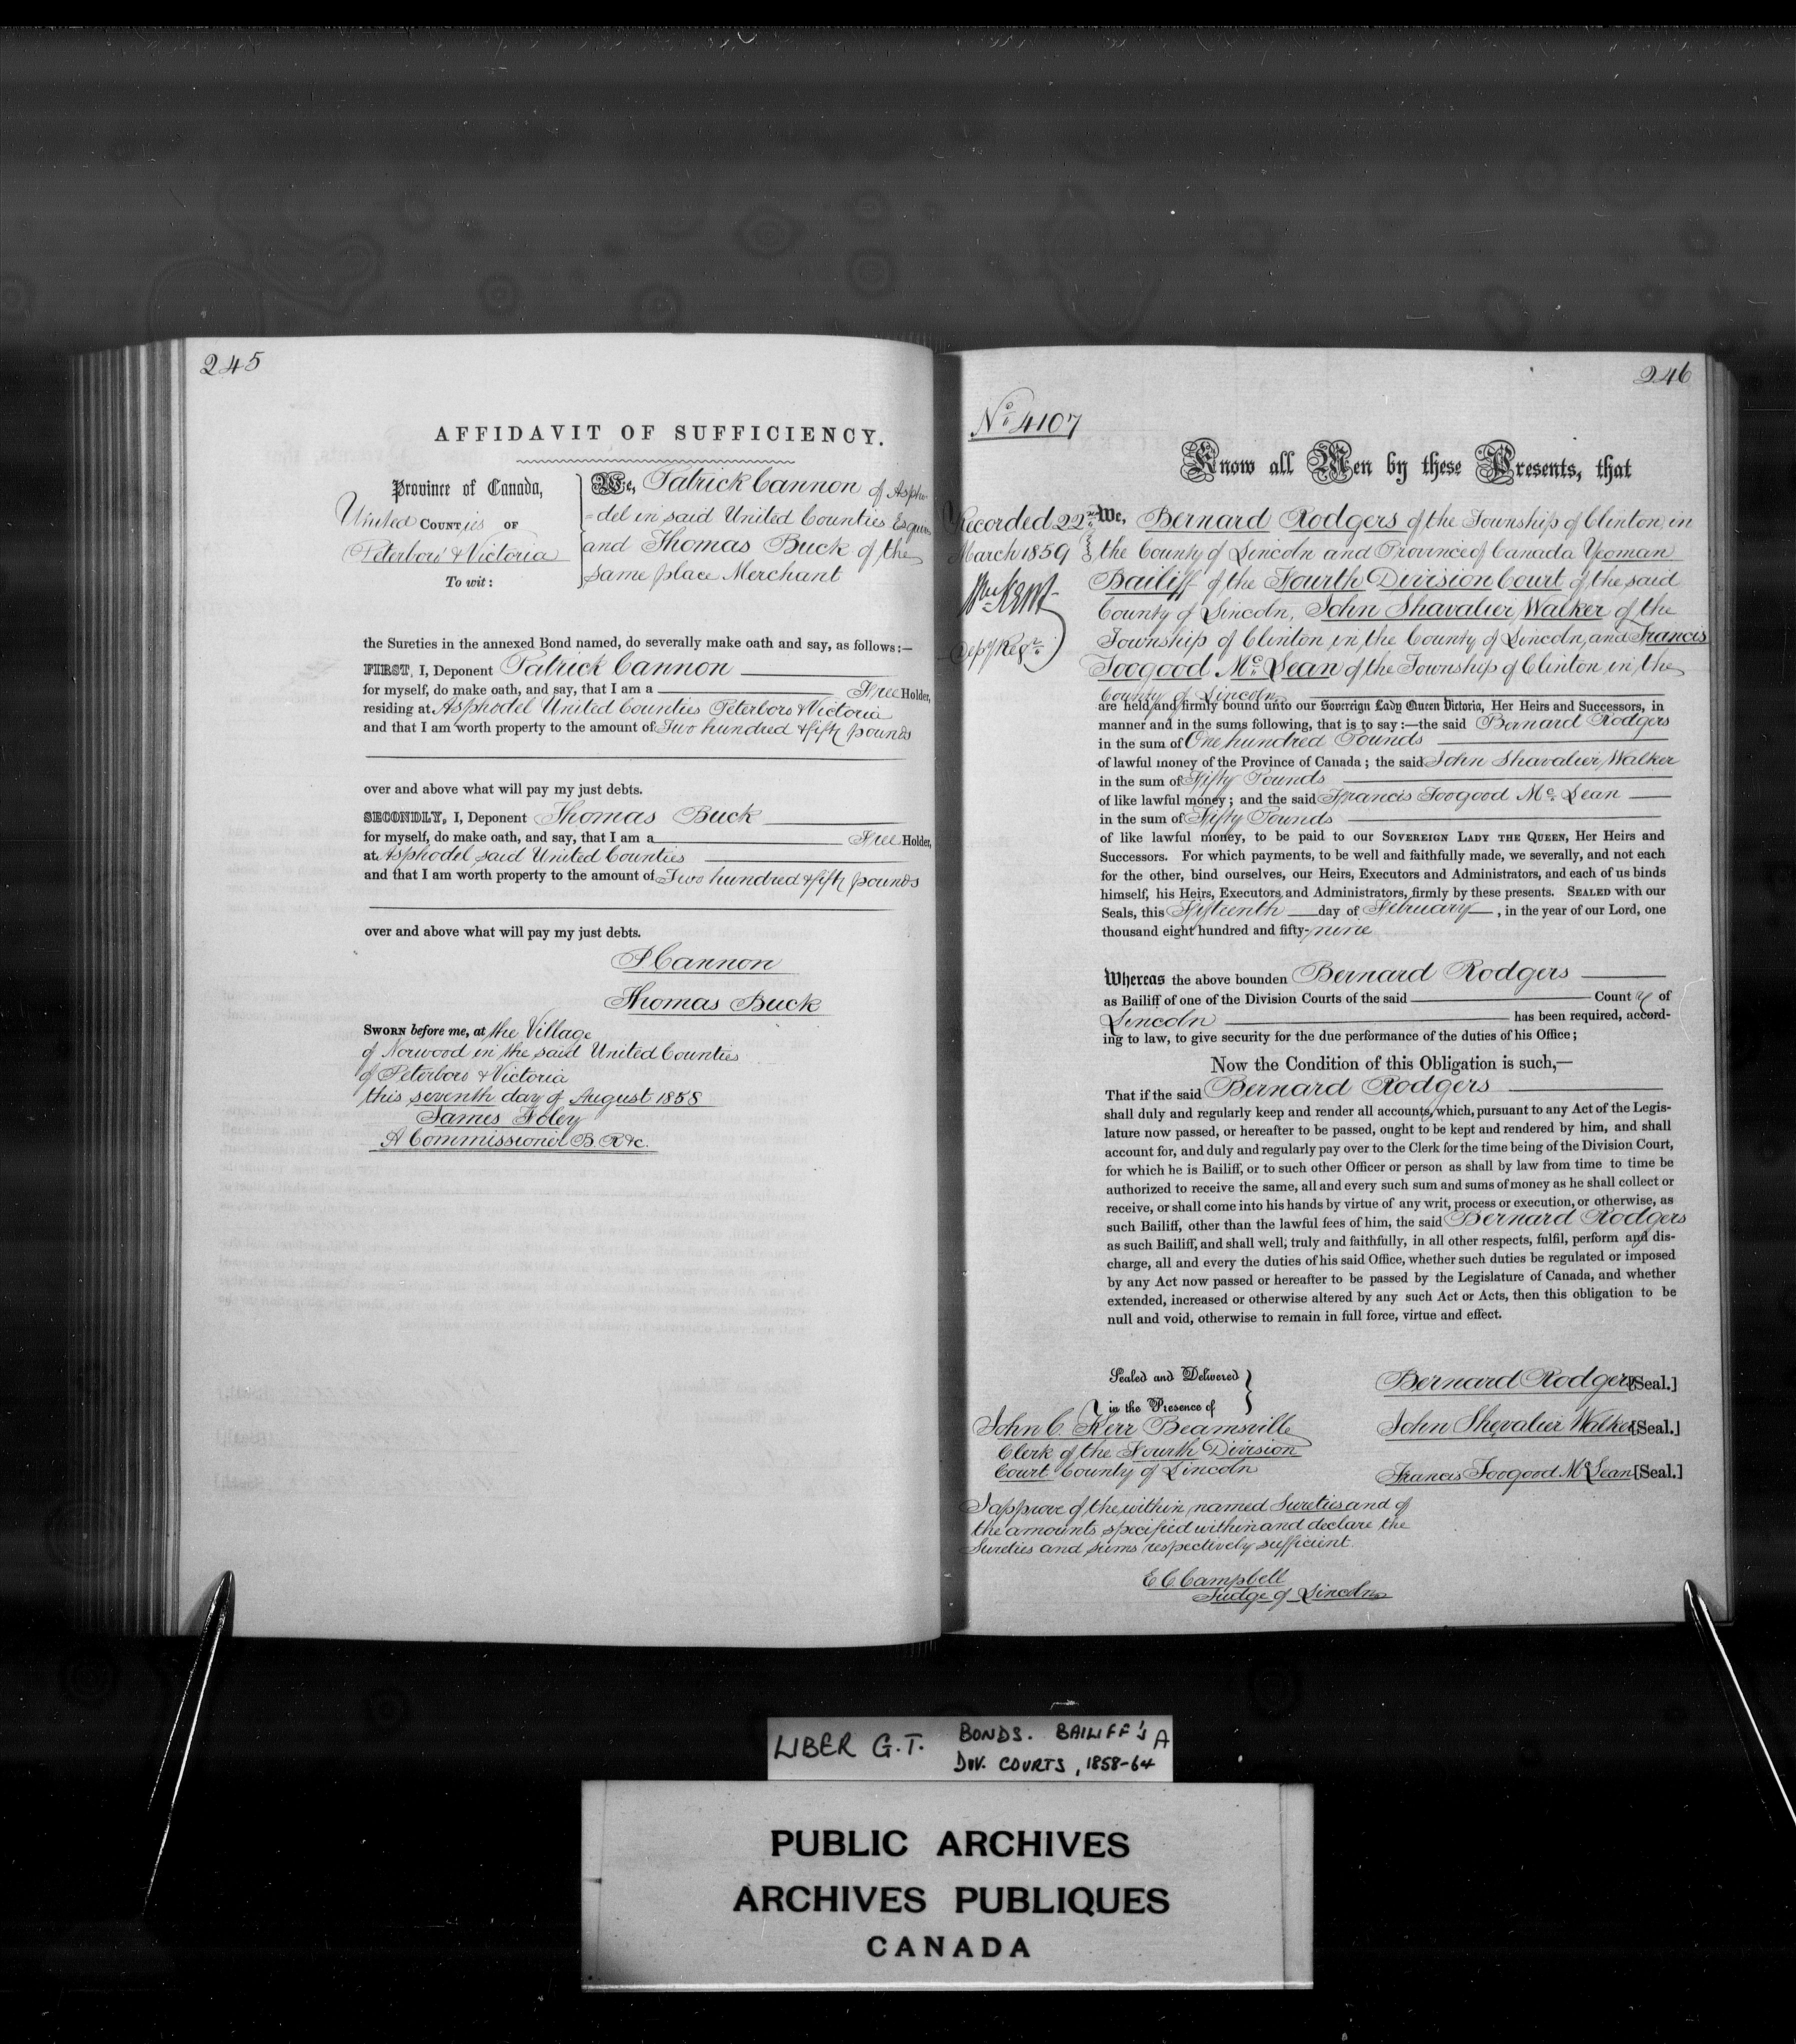 245
AFFIDAVIT OF SUFFICIENCY.
Province of Canada,
United COUNTies OF
Peterboro' & Victoria
To wit:
We, Patrick Cannon of Aspho-
=del in said United Counties Esquire
and Thomas Buck of the
same place Merchant
the Sureties in the annexed Bond named, do severally make oath and say, as follows:—
FIRST, I, Deponent Patrick Cannon
for myself, do make oath, and say, that I am a Free Holder,
residing at Asphodel United Counties Peterboro & Victoria
and that I am worth property to the amount of Two hundred & fifty pounds
over and above what will pay my just debts.
SECONDLY, I, Deponent Thomas Buck
for myself, do make oath, and say, that I am a Free Holder,
at Asphodel said United Counties
and that I am worth property to the amount of Two hundred & fifty pounds
over and above what will pay my just debts.
P Cannon
Thomas Buck
SWORN before me, at the Village
of Norwood in the said United Counties
of Peterboro & Victoria
this seventh day of August 1858
James Foley
A Commissioner B. R. &c.
246
No. 4107
Know all Men by these Presents, that
Recorded 22nd
March 1859
Wm Kent
Depy Regr.
We, Bernard Rodgers of the Township of Clinton, in
the County of Lincoln and Province of Canada Yeoman
Bailiff of the Fourth Division Court of the said
County of Lincoln, John Shavalier Walker of the
Township of Clinton in the County of Lincoln, and Francis
Toogood Mc. Lean of the Township of Clinton in the
County of Lincoln
are held and firmly bound unto our Sovereign Lady Queen Victoria, Her Heirs and Successors, in
manner and in the sums following, that is to say:—the said Bernard Rodgers
in the sum of One hundred Pounds
of lawful money of the Province of Canada; the said John Shavalier Walker
in the sum of Fifty Pounds
of like lawful money; and the said Francis Toogood Mc. Lean
in the sum of Fifty Pounds
of like lawful money, to be paid to our SOVEREIGN LADY THE QUEEN, Her Heirs and
Successors. For which payments, to be well and faithfully made, we severally, and not each
for the other, bind ourselves, our Heirs, Executors and Administrators, and each of us binds
himself, his Heirs, Executors and Administrators, firmly by these presents. SEALED with our
Seals, this Fifteenth day of February, in the year of our Lord, one
thousand eight hundred and fifty-nine
Whereas the above bounden Bernard Rodgers
as Bailiff of one of the Division Courts of the said County of
Lincoln has been required, accord-
ing to law, to give security for the due performance of the duties of his Office;
Now the Condition of this Obligation is such,—
That if the said Bernard Rodgers
shall duly and regularly keep and render all accounts, which, pursuant to any Act of the Legis-
lature now passed, or hereafter to be passed, ought to be kept and rendered by him, and shall
account for, and duly and regularly pay over to the Clerk for the time being of the Division Court,
for which he is Bailiff, or to such other Officer or person as shall by law from time to time be
authorized to receive the same, all and every such sum and sums of money as he shall collect or
receive, or shall come into his hands by virtue of any writ, process or execution, or otherwise, as
such Bailiff, other than the lawful fees of him, the said Bernard Rodgers
as such Bailiff, and shall well, truly and faithfully, in all other respects, fulfil, perform and dis-
charge, all and every the duties of his said Office, whether such duties be regulated or imposed
by any Act now passed or hereafter to be passed by the Legislature of Canada, and whether
extended, increased or otherwise altered by any such Act or Acts, then this obligation to be
null and void, otherwise to remain in full force, virtue and effect.
Sealed and Delivered
in the Presence of
John C. Kerr Beamsville
Clerk of the Fourth Division
Court County of Lincoln
Bernard Rodgers [Seal.]
John Shevalier Walker [Seal.]
Francis Toogood Mc Lean [Seal.]
I approve of the within named Sureties and of
the amounts specified within and declare the
Sureties and sums respectively sufficient.
E C Campbell
Judge of Lincoln
LIBER G.T. BONDS. BAILIFF'S A
DIV. COURTS, 1858-64
PUBLIC ARCHIVES
ARCHIVES PUBLIQUES
CANADA